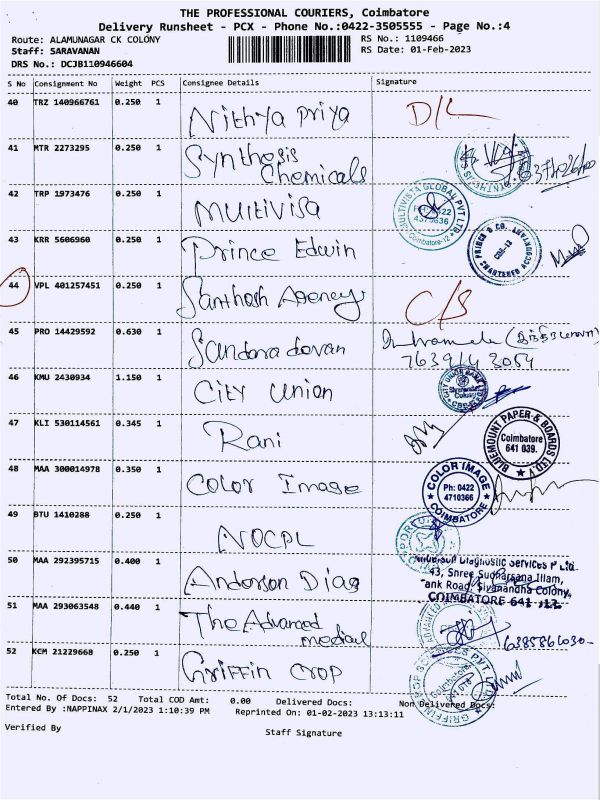 THE PROFESSIONAL COURIERS, Coimbatore
Delivery Runsheet - PCX - Phone No.:0422-3505555 - Page No.:4
Route: ALAMUNAGAR CK COLONY RS No.: 1109466
Staff: SARAVANAN RS Date: 01-Feb-2023
DRS No.: DCJB110946604
S No Consignment No Weight PCS Consignee Details Signature
40 TRZ 140966761 0.250 1 Nithya Priya D/L
41 MTR 2273295 0.250 1 Synthesis Chemicals
42 TRP 1973476 0.250 1 Multivisa
MULTIVISTA GLOBAL PVT LTD PH: 0422 4379636 Coimbatore-12
43 KRR 5606960 0.250 1 Prince Edwin
44 VPL 401257451 0.250 1 Santhosh Agency C/S
45 PRO 14429592 0.630 1 Sundara devan
46 KMU 2430934 1.150 1 City Union
47 KLI 530114561 0.345 1 Rani
BLUEMOUNT PAPER & BOARDS Coimbatore 641 039.
48 MAA 300014978 0.350 1 Color Image
COLOR IMAGE Ph: 0422 4710366 COIMBATORE
49 BTU 1410288 0.250 1 NOCPL
50 MAA 292395715 0.400 1 Anderson Diag
Diagnostic Services P Ltd.
43, Shree Sudharsana Illam,
Tank Road, Sivanandha Colony,
COIMBATORE 641 012
51 MAA 293063548 0.440 1 The Advanced medical
52 KCM 21229668 0.250 1 Griffin Crop
Total No. Of Docs: 52 Total COD Amt: 0.00 Delivered Docs: Non Delivered Docs:
Entered By :NAPPINAX 2/1/2023 1:10:39 PM Reprinted On: 01-02-2023 13:13:11
Verified By Staff Signature